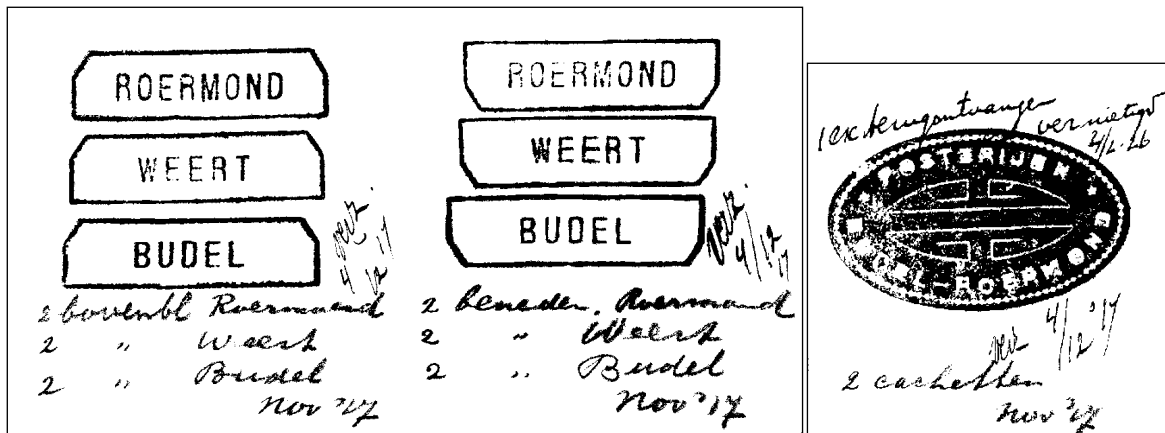 ROERMOND
WEERT
BUDEL
verz.
4/12 17
2 bovenbl Roermond
2 " Weert
2 " Budel
Nov '17
ROERMOND
WEERT
BUDEL
verz.
4/12 17
2 beneden. Roermond
2 " Weert
2 " Budel
Nov '17
1 ex terugontvangen
vernietigd
4/2.26
POSTERIJEN
BUDEL-ROERMOND
verz 4/12 '17
2 cachetten
Nov '17